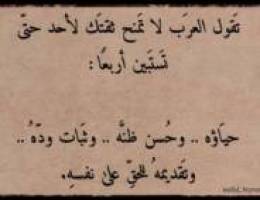 تَقول العرَب لا تمنح ثقتَك لأحد حتّى
تَستَبين أربعًا :
حيَاؤه .. وحُسن ظنَّه .. وثبَات ودّهُ ..
وتَقديمهُ للحقِّ علىٰ نفسهِ.